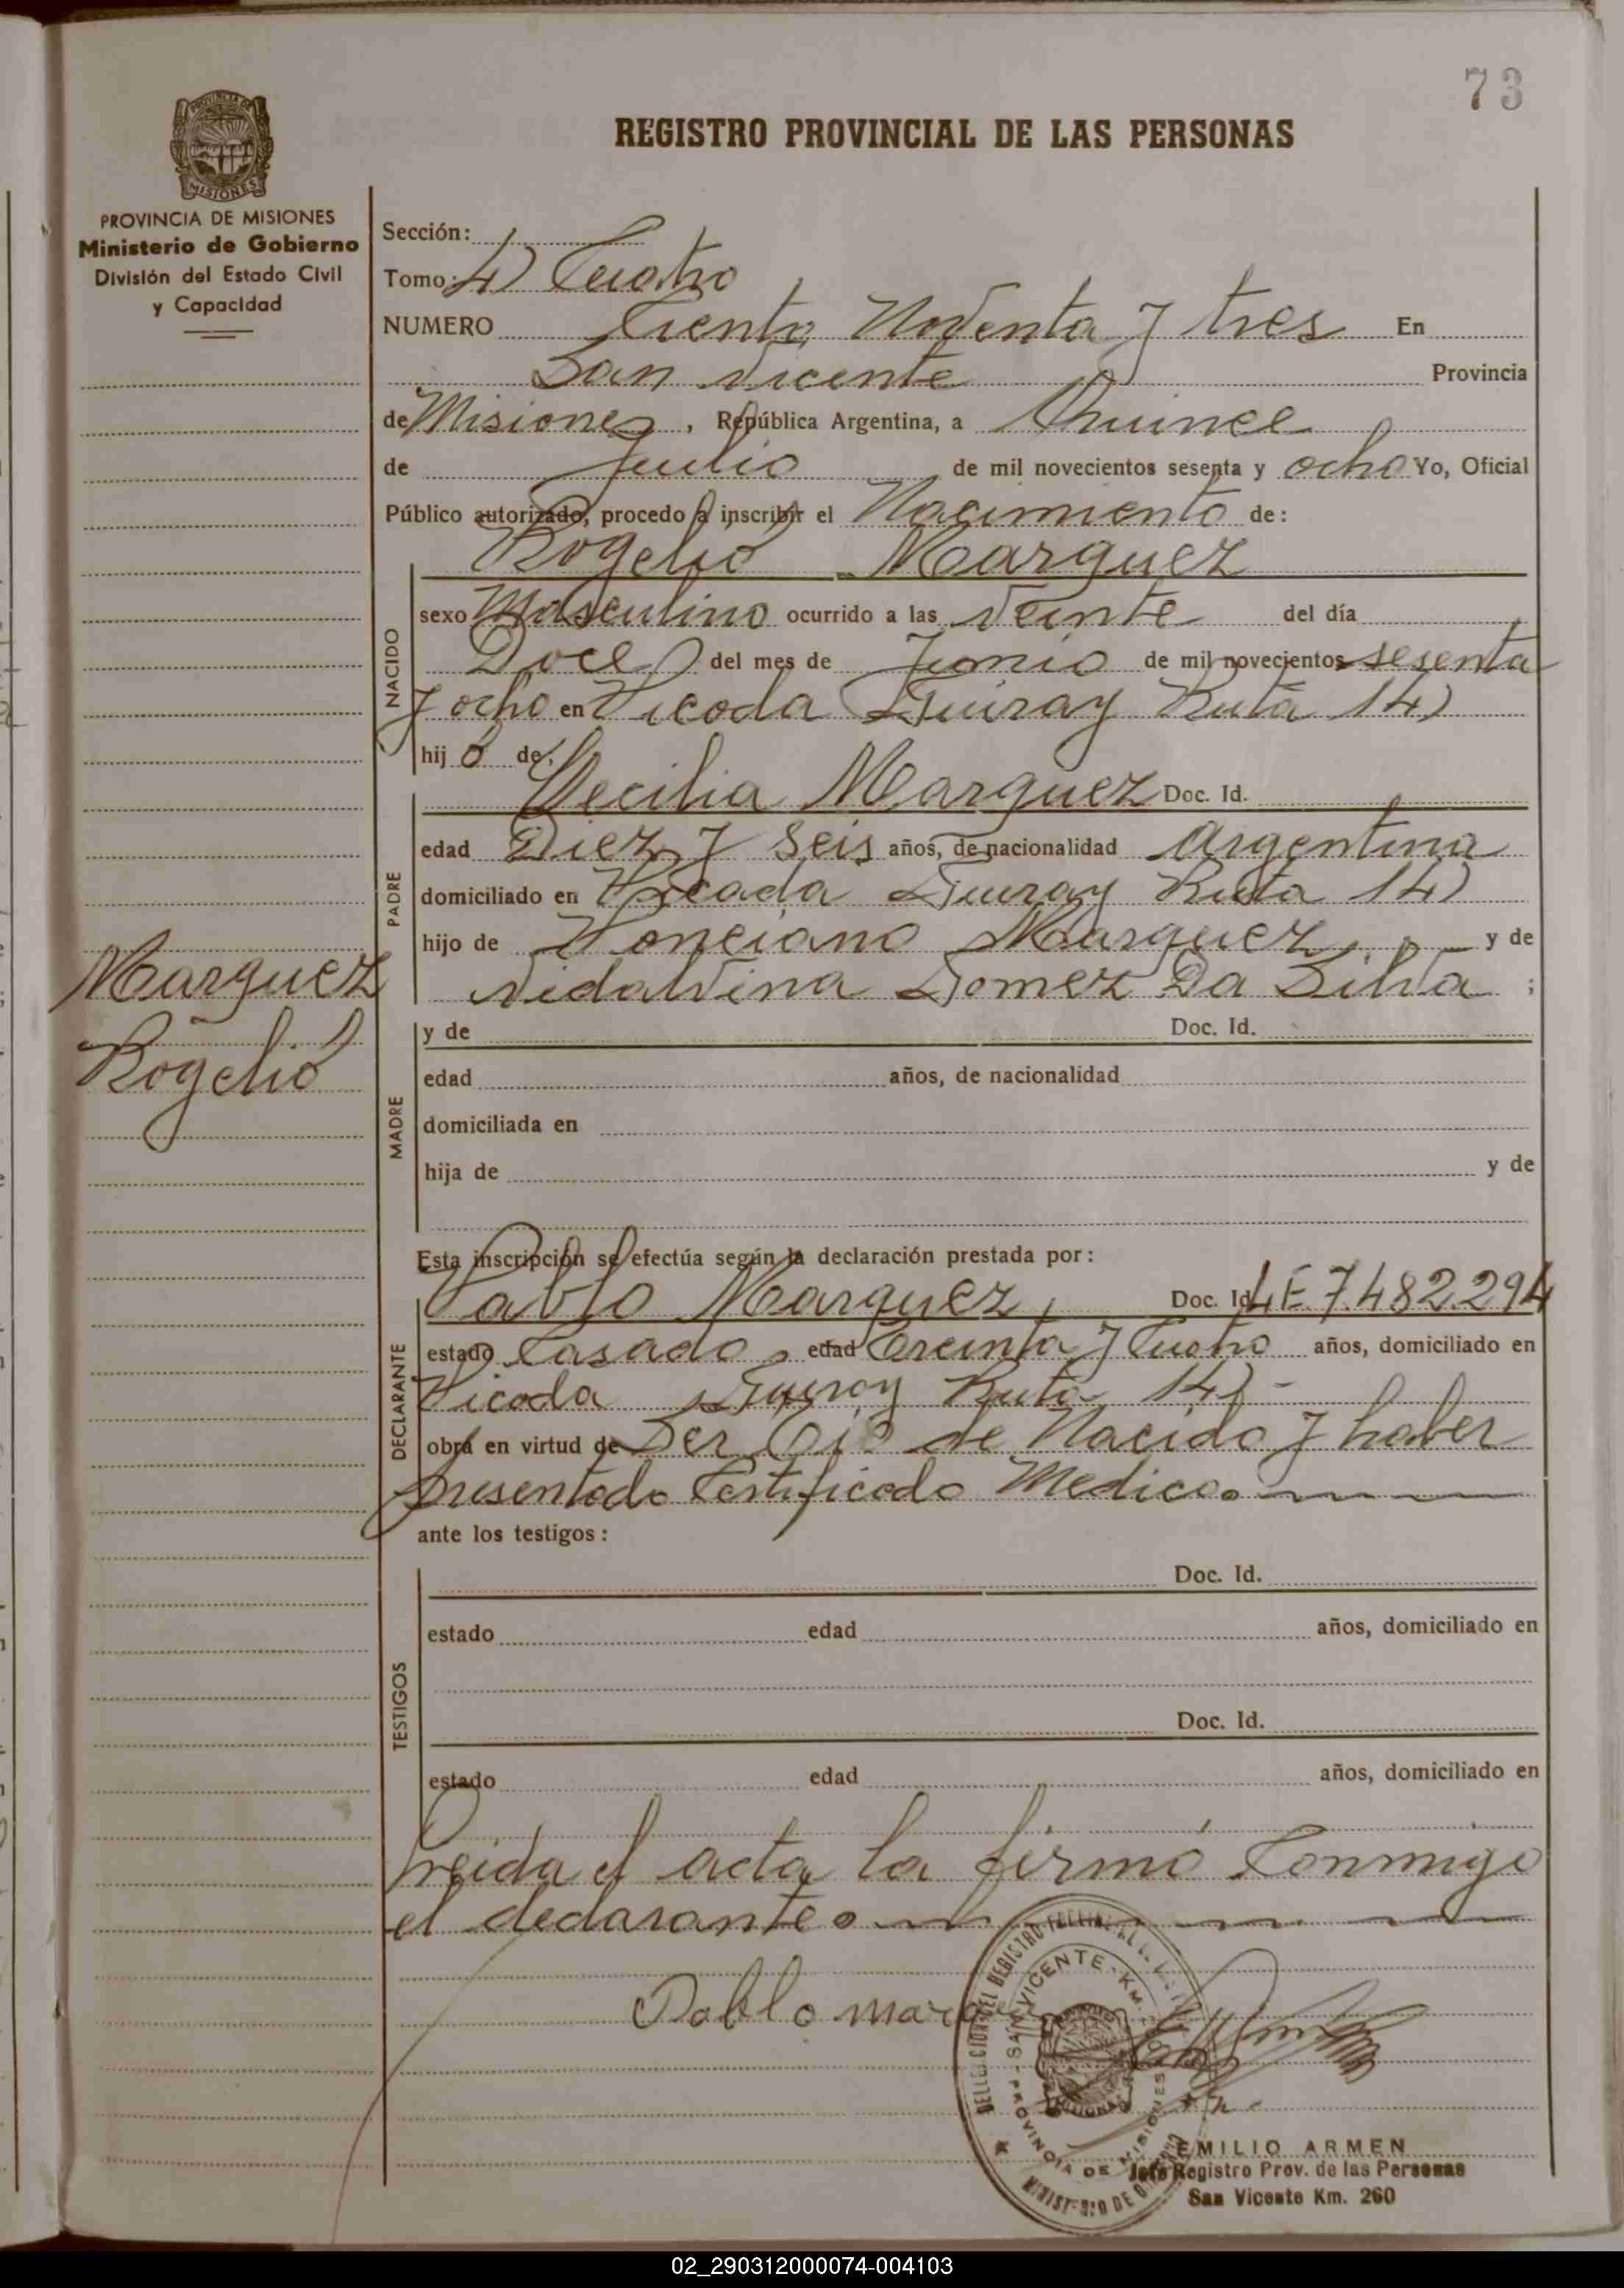 73
REGISTRO PROVINCIAL DE LAS PERSONAS
PROVINCIA DE MISIONES
Ministerio de Gobierno
División del Estado Civil
y Capacidad
Sección:
Tomo: 4) Cuatro
NUMERO Ciento Noventa y tres En
San Vicente Provincia
de Misiones, República Argentina, a Quince
de Julio de mil novecientos sesenta y ocho Yo, Oficial
Público autorizado, procedo a inscribir el Nacimiento de:
Rogelio Marquez
NACIDO
sexo Masculino ocurrido a las Veinte del día
Doce del mes de Junio de mil novecientos sesenta
y ocho en Picada Guiray Ruta 14)
hijo de:
Cecilia Marquez Doc. Id.
PADRE
edad Diez y Seis años, de nacionalidad Argentina
domiciliado en Picada Guiray Ruta 14)
hijo de Ponciano Marquez y de
Vidalvina Gomez Da Silva ;
Marquez
Rogelio
MADRE
y de Doc. Id.
edad años, de nacionalidad
domiciliada en
hija de y de
Esta inscripción se efectúa según la declaración prestada por:
DECLARANTE
Pablo Marquez, Doc. Id. LE 7.482.294
estado Casado, edad Treinta y Cuatro años, domiciliado en
Picada Guiray Ruta 14)-
obra en virtud de Ser de Nacido y haber
presentado Certificado Medico.
ante los testigos:
TESTIGOS
Doc. Id.
estado edad años, domiciliado en
Doc. Id.
estado edad años, domiciliado en
Leida el acta la firmó Conmigo
el declarante.
Pablo
SAN VICENTE - KM.
PROVINCIA DE MISIONES
EMILIO ARMEN
Jefe Registro Prov. de las Personas
San Vicente Km. 260
02_290312000074-004103